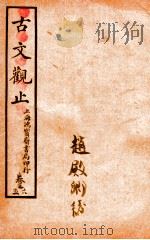 古文觀止
上海鴻寶齋書局印行
卷五之六
趙殿